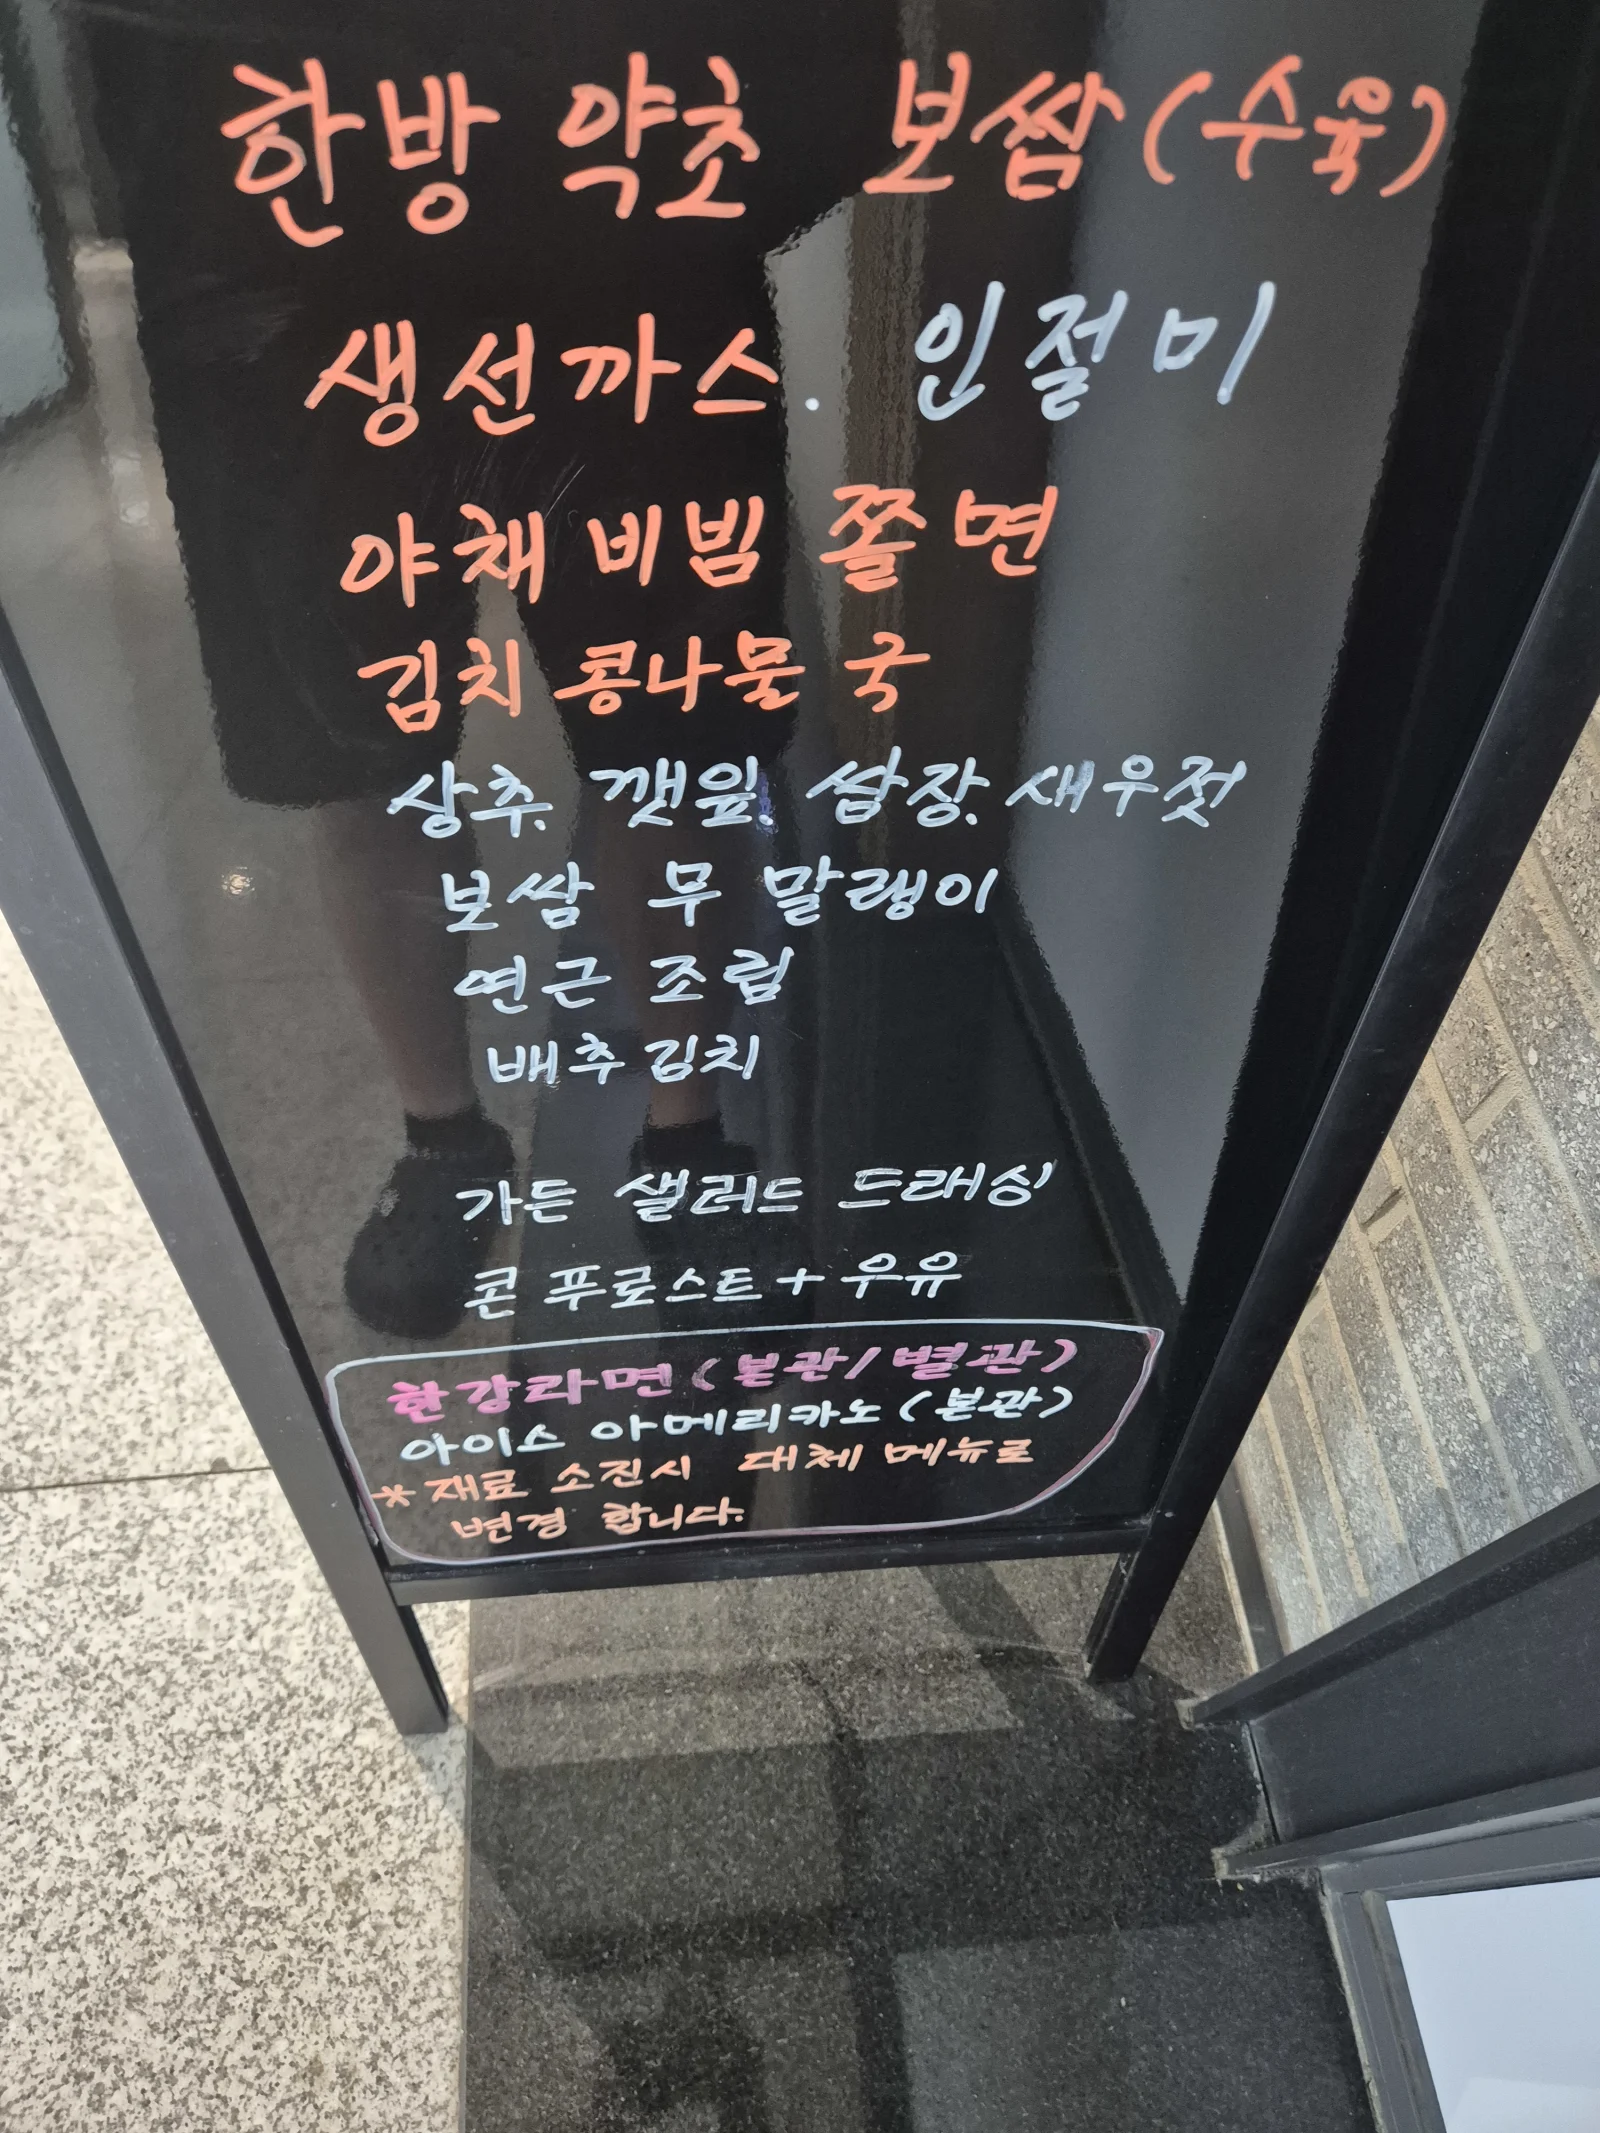 한방 약초 보쌈(수육)
생선까스. 인절미
야채 비빔 쫄면
김치 콩나물 국
상추. 깻잎. 쌈장. 새우젓
보쌈 무 말랭이
연근 조림
배추 김치
가든 샐러드 드래싱
콘 푸로스트 + 우유
한강라면(본관/별관)
아이스 아메리카노(본관)
* 재료 소진시 대체 메뉴로
변경 합니다.